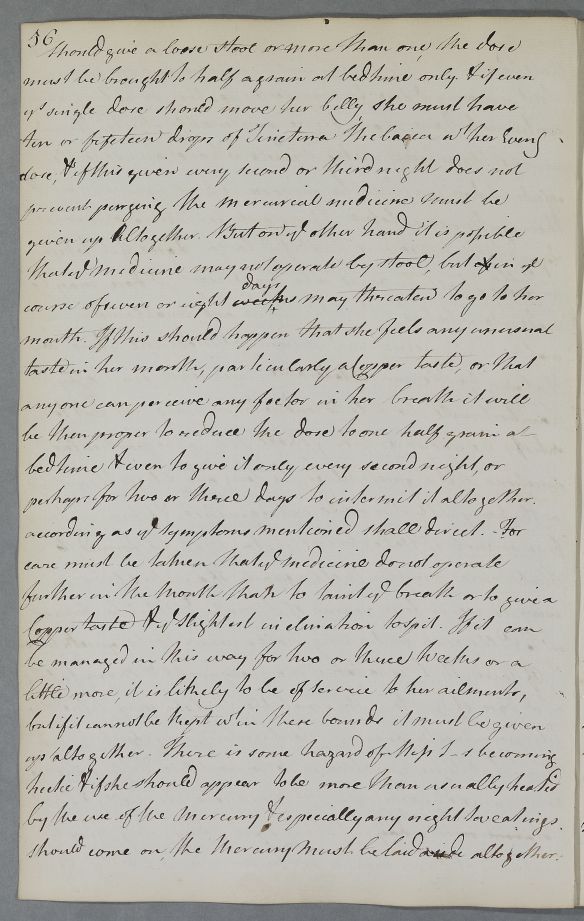 56
should give a loose stool or more than one, the dose
must be brought to half a grain at bedtime only. & if even
yt single dose should move her belly, she must have
ten or fifeteen drops of Tinctura Thebaica wt her Eveng
dose, & if this given every second or third night does not
prevent purging the mercurial medicine must be
given up Altogether. But on ye other hand it is possible
that ye medicine may not operate by stool, but in ye
course of seven or eight days may threaten to go to her
mouth. If this should happen that she feels any unusual
taste in her mouth, particularly a Copper taste, or that
any one can perceive any foetor in her breath it will
be then proper to reduce the dose to one half grain at
bedtime & even to give it only every second night, or
perhaps for two or three days to intermit it altogether.
according as ye symptoms mentioned shall direct. For
care must be taken that ye medicine do not operate
further in the mouth than to taint ye breath or to give a
Copper taste & ye slightest inclination to spit. If it can
be managed in this way for two or three weeks or a
little more, it is likely to be of service to her ailments,
but if it cannot be kept wt in these bounds it must be given
up altogether. There is some hazard of Miss I-s becoming
hectic & if she should appear to be more than usually heated
by the use of the mercury & especially any night sweatings
should come on, the Mercury must be laid aside altogether.